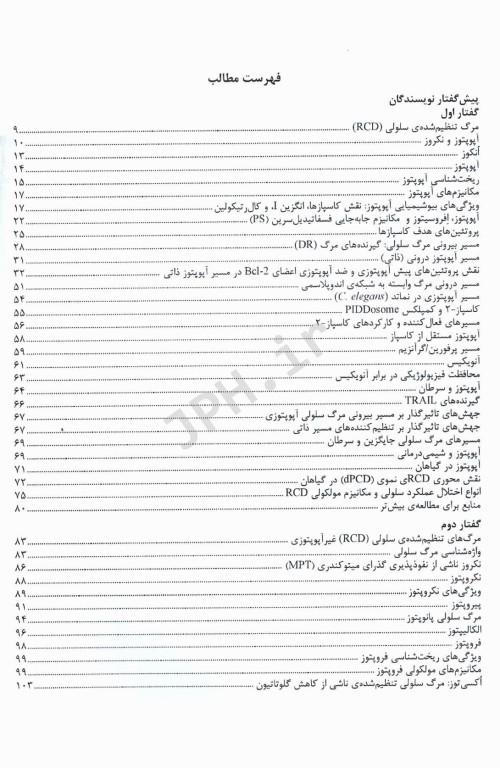 فهرست مطالب
پیش‌گفتار نویسندگان
گفتار اول
مرگ تنظیم‌شده‌ی سلولی (RCD) ... ۹
آپوپتوز و نکروز ... ۱۰
آنکوز ... ۱۳
آپوپتوز ... ۱۴
ریخت‌شناسی آپوپتوز ... ۱۵
مکانیزم‌های آپوپتوز ... ۱۷
ویژگی‌های بیوشیمیایی آپوپتوز: نقش کاسپازها، انگزین I، و کال‌رتیکولین ... ۱۷
آپوپتوز، اِفروسیتوز و مکانیزم جابه‌جایی فسفاتیدیل‌سرین (PS) ... ۲۲
پروتئین‌های هدف کاسپازها ... ۲۵
مسیر بیرونی مرگ سلولی: گیرنده‌های مرگ (DR) ... ۲۸
مسیر آپوپتوز درونی (ذاتی) ... ۳۱
نقش پروتئین‌های پیش آپوپتوزی و ضد آپوپتوزی اعضای Bcl-2 در مسیر آپوپتوز ذاتی ... ۳۲
مسیر درونی مرگ وابسته به شبکه‌ی اندوپلاسمی ... ۵۱
مسیر آپوپتوزی در نماتد (C. elegans) ... ۵۴
کاسپاز-۲ و کمپلکس PIDDosome ... ۵۵
مسیرهای فعال‌کننده و کارکردهای کاسپاز-۲ ... ۵۶
آپوپتوز مستقل از کاسپاز ... ۵۸
مسیر پرفورین/گرانزیم ... ۵۹
آنویکیس ... ۶۱
محافظت فیزیولوژیکی در برابر آنویکیس ... ۶۳
آپوپتوز و سرطان ... ۶۴
گیرنده‌های TRAIL ... ۶۶
جهش‌های تاثیرگذار بر مسیر بیرونی مرگ سلولی آپوپتوزی ... ۶۷
جهش‌های تاثیرگذار بر تنظیم‌کننده‌های مسیر ذاتی ... ۶۷
مسیرهای مرگ سلولی جایگزین و سرطان ... ۶۹
آپوپتوز و شیمی‌درمانی ... ۶۹
آپوپتوز در گیاهان ... ۷۱
نقش محوری RCDی نموی (dPCD) در گیاهان ... ۷۲
انواع اختلال عملکرد سلولی و مکانیزم مولکولی RCD ... ۷۵
منابع برای مطالعه‌ی بیش‌تر ... ۸۰
گفتار دوم
مرگ‌های تنظیم‌شده‌ی سلولی (RCD) غیرآپوپتوزی ... ۸۳
واژه‌شناسی مرگ سلولی ... ۸۳
نکروز ناشی از نفوذپذیری گذرای میتوکندری (MPT) ... ۸۶
نکروپتوز ... ۸۸
ویژگی‌های نکروپتوز ... ۸۹
پیروپتوز ... ۹۱
مرگ سلولی پانوپتوز ... ۹۴
الکالیپتوز ... ۹۶
فروپتوز ... ۹۸
ویژگی‌های ریخت‌شناسی فروپتوز ... ۹۹
مکانیزم‌های مولکولی فروپتوز ... ۹۹
اُکسی‌توز: مرگ سلولی تنظیم‌شده‌ی ناشی از کاهش گلوتاتیون ... ۱۰۳
JPH.ir